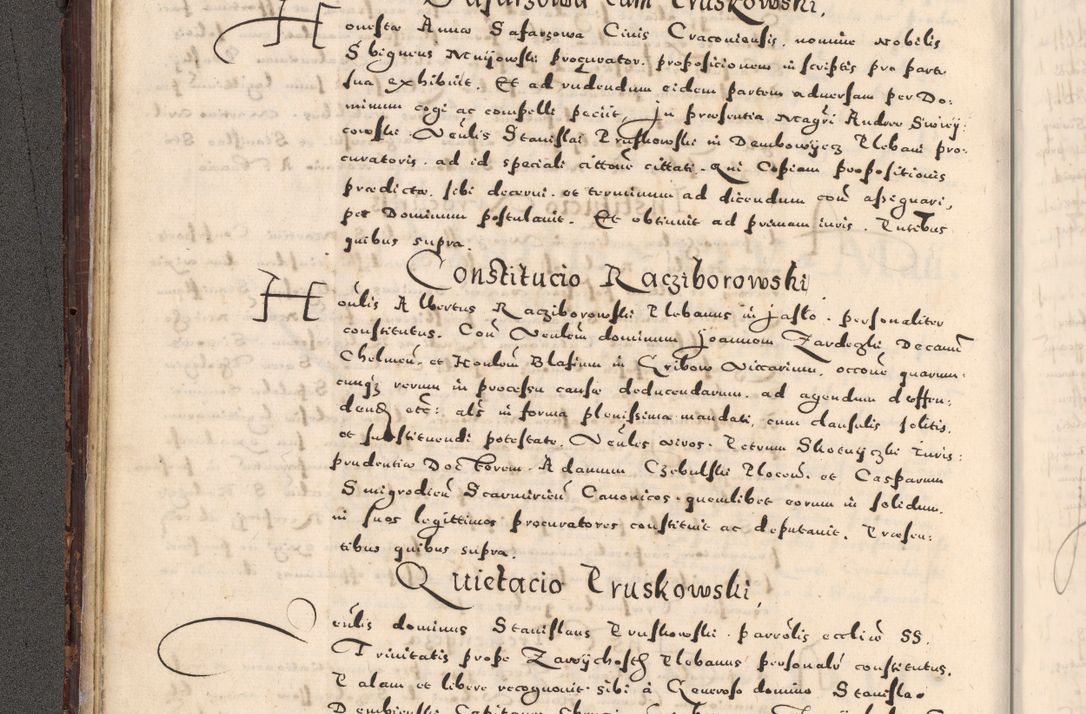 Safarzowa cum Pruskowski,
Honesta Anna Safarzowa Civis Cracoviensis, nomine Nobilis
Sbigneus procurator, propositionem in scriptis pro parte
sua exhibuit. Et ad videndum eidem partem adversam per Do:
minum cogi ac compelli petiit, In præsentia Mag̃ri Andreæ Swięy:
cowski Veñlis Stanislai Pruskowski in Dembowyecz Plebani pro:
curatoris, ad id speciali cittõne cittati. Qui Copiam propositionis
prædictæ, sibi decerni, et terminum ad dicendum coñ assignari,
per Dominum postulavit. Et obtinuit ad primam iuris. Pñtibus
quibus supra.
Constitucio Racziborowski
Hoñlis Albertus Racziborowski Plebanus in Jasło, personaliter
constitutus. Coñ Veñlem dominum Joannem Zardeczki Decanũ
Chelmeñ, et Honlem Blasium in Gribow Viccarium, occõne quarum:
cunqz rerum in processu causæ deducendarum, ad agendum deffen:
dend etc: als in forma plenissima mandati, cum clausulis solitis,
et substituendi potestate, Veñles viros, Petrum Skotnyczki Iuris:
prudentiæ Doctorem, Adamum Czebulski Ploceñ, et Casparum
Smigrodieñ Scarmirieñ Canonicos, quemlibet eorum in solidum,
in suos legittimos procuratores constituit ac deputavit. Præsen:
tibus quibus supra.
Quietacio Pruskowski,
Veñlis dominus Stanislaus Pruskowski, parrolis eccliæ SS.
Trinitatis prope Zawychosth Plebanus personalr constitutus,
Palam et libere recognovit sibi à Generoso domino Stanislao
Dembienski